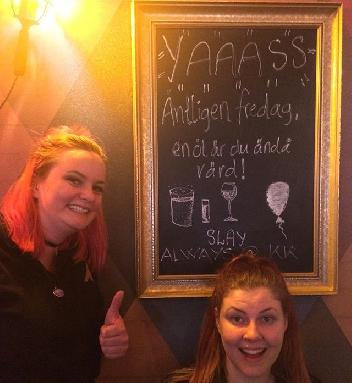 YÄÄÄSS
Äntligen fredag,
en öl är du ändå
värd!
SLAY
ALWAYS @ KK